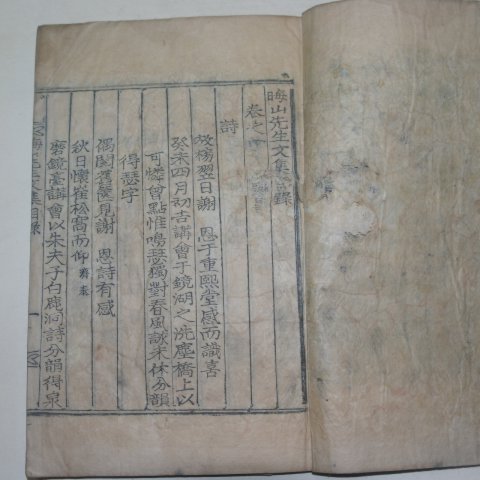 晦山先生文集目錄
卷之一
詩
放榜翌日謝 恩于重熙堂感而識喜
癸未四月初吉講會于鏡湖之洗塵橋上以
可憐曾點惟鳴瑟獨對春風詠未休分韻
得瑟字
偶閱舊篋見謝 恩詩有感
秋日懷崔松窩而仰
磨鏡臺講會以朱夫子白鹿洞詩分韻得泉
晦山先生文集目錄
一